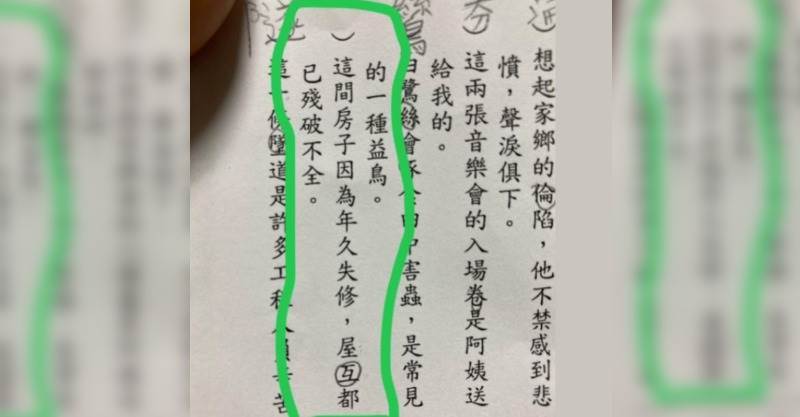 想起家鄉的倫陷，他不禁感到悲
憤，聲淚俱下。
這兩張音樂會的入場卷是阿姨送
給我的。
白鷺絲會啄食田中害蟲，是常見
的一種益鳥。
這間房子因為年久失修，屋互都
已殘破不全。
這一條墜道是許多工程人員辛苦